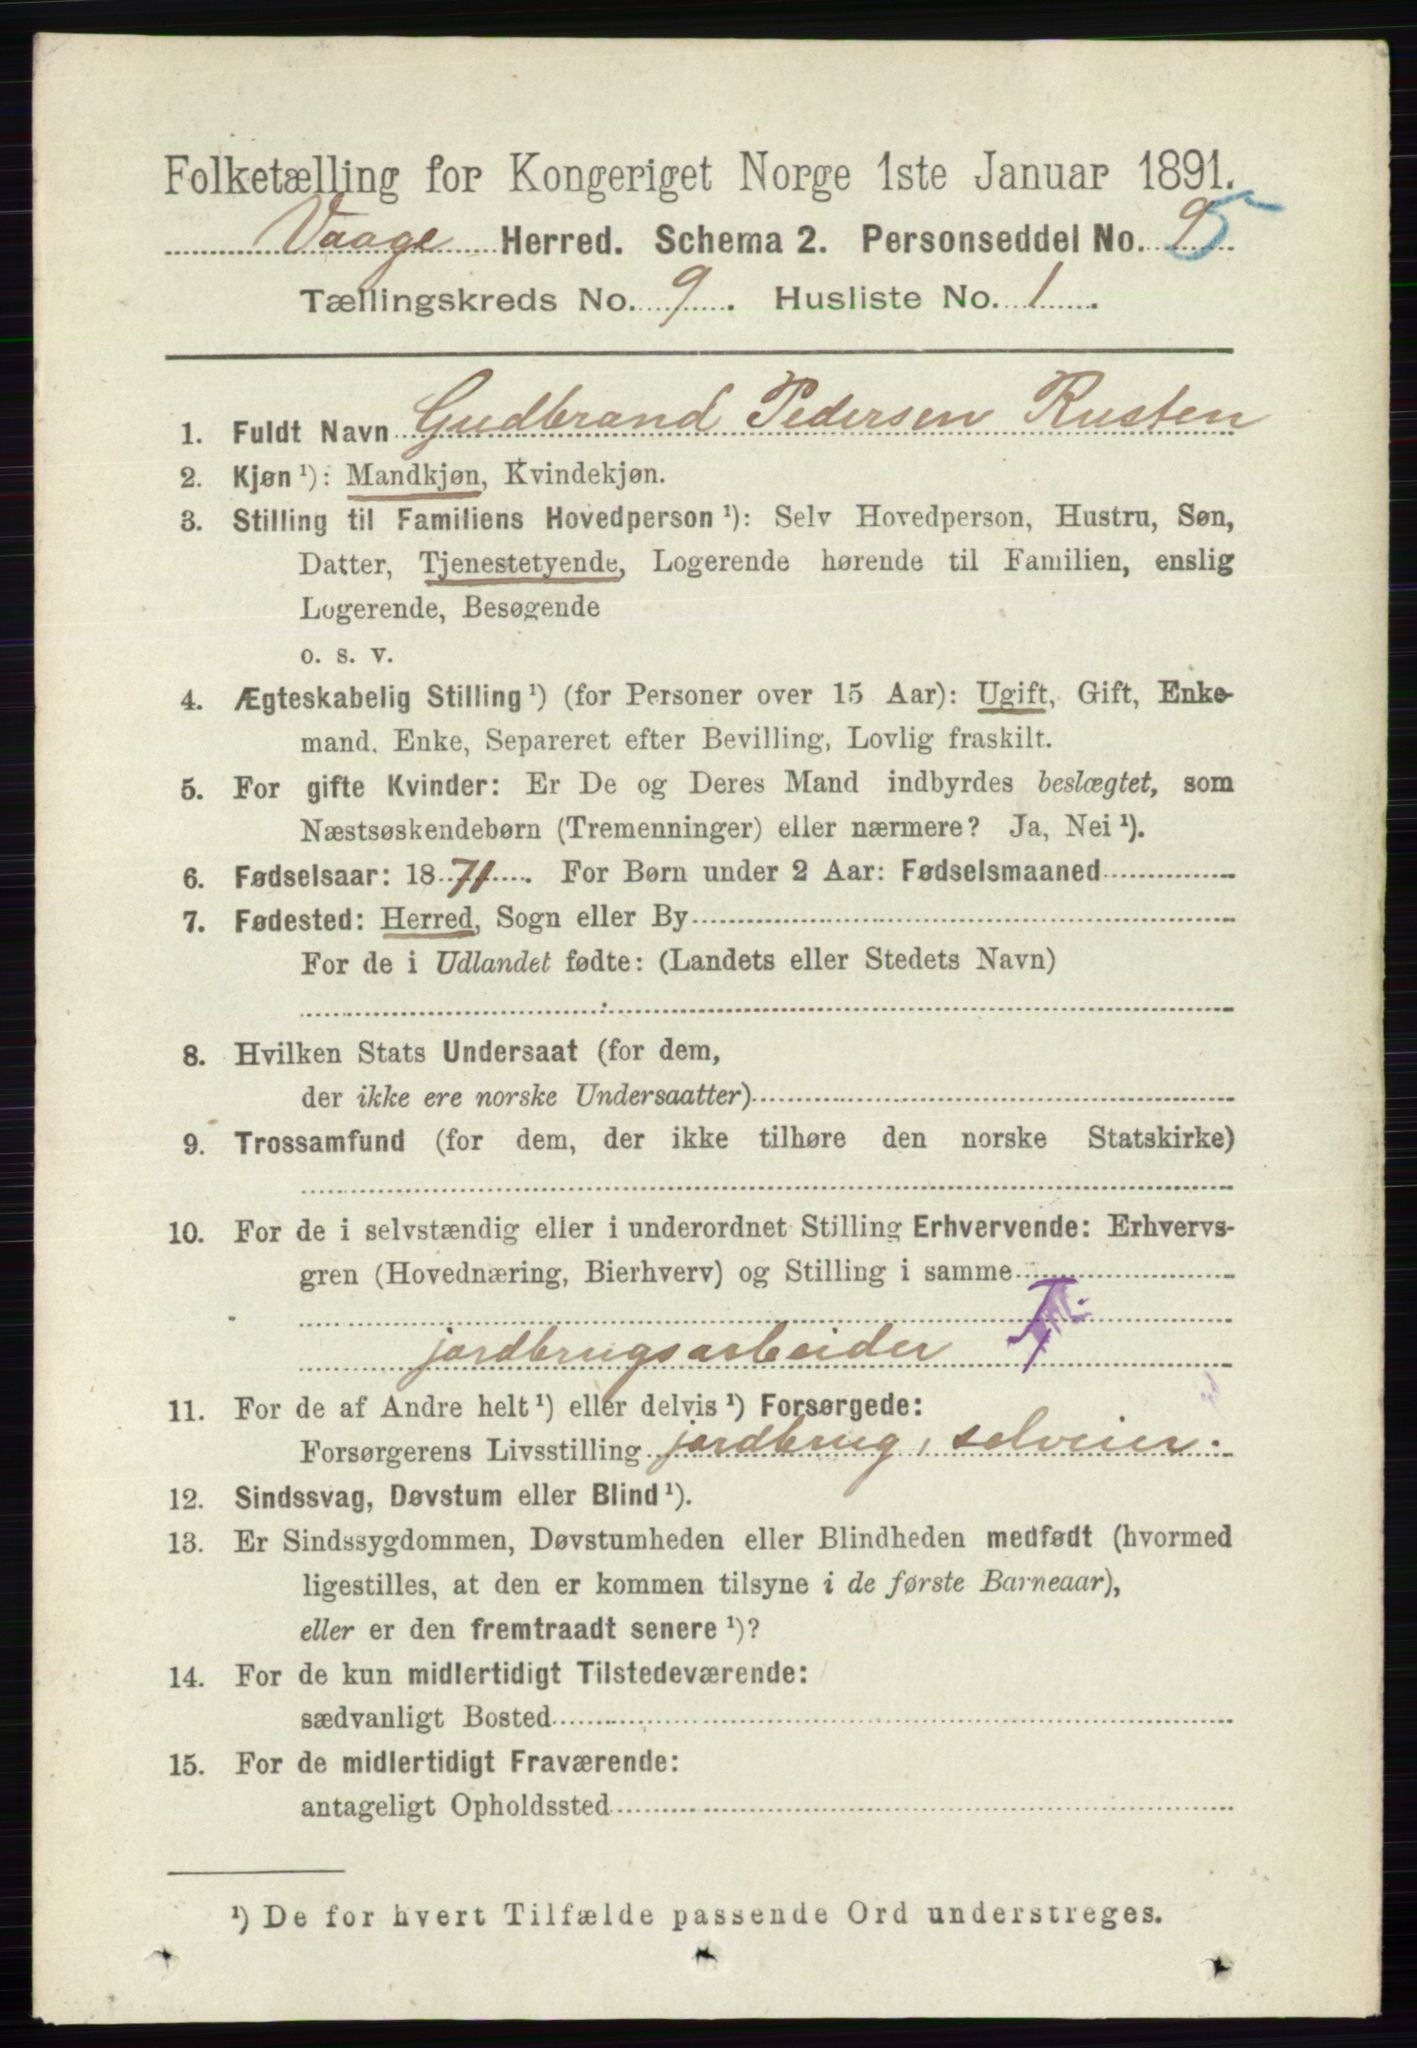 Folketælling for Kongeriget Norge 1ste Januar 1891.
Vaage Herred. Schema 2. Personseddel No. 5
Tællingskreds No. 9. Husliste No. 1.
1. Fuldt Navn Gudbrand Pedersen Rusten
2. Kjøn ¹): Mandkjøn, Kvindekjøn.
3. Stilling til Familiens Hovedperson ¹): Selv Hovedperson, Hustru, Søn,
Datter, Tjenestetyende, Logerende hørende til Familien, enslig
Logerende, Besøgende
o. s. v.
4. Ægteskabelig Stilling ¹) (for Personer over 15 Aar): Ugift, Gift, Enke-
mand, Enke, Separeret efter Bevilling, Lovlig fraskilt.
5. For gifte Kvinder: Er De og Deres Mand indbyrdes beslægtet, som
Næstsøskendebørn (Tremenninger) eller nærmere? Ja, Nei ¹).
6. Fødselsaar: 1871. For Børn under 2 Aar: Fødselsmaaned
7. Fødested: Herred, Sogn eller By
For de i Udlandet fødte: (Landets eller Stedets Navn)
8. Hvilken Stats Undersaat (for dem,
der ikke ere norske Undersaatter)
9. Trossamfund (for dem, der ikke tilhøre den norske Statskirke)
10. For de i selvstændig eller i underordnet Stilling Erhvervende: Erhvervs-
gren (Hovednæring, Bierhverv) og Stilling i samme
jordbrugsarbeider
11. For de af Andre helt ¹) eller delvis ¹) Forsørgede:
Forsørgerens Livsstilling jordbrug, selveier.
12. Sindssvag, Døvstum eller Blind ¹).
13. Er Sindssygdommen, Døvstumheden eller Blindheden medfødt (hvormed
ligestilles, at den er kommen tilsyne i de første Barneaar),
eller er den fremtraadt senere ¹)?
14. For de kun midlertidigt Tilstedeværende:
sædvanligt Bosted
15. For de midlertidigt Fraværende:
antageligt Opholdssted
¹) De for hvert Tilfælde passende Ord understreges.